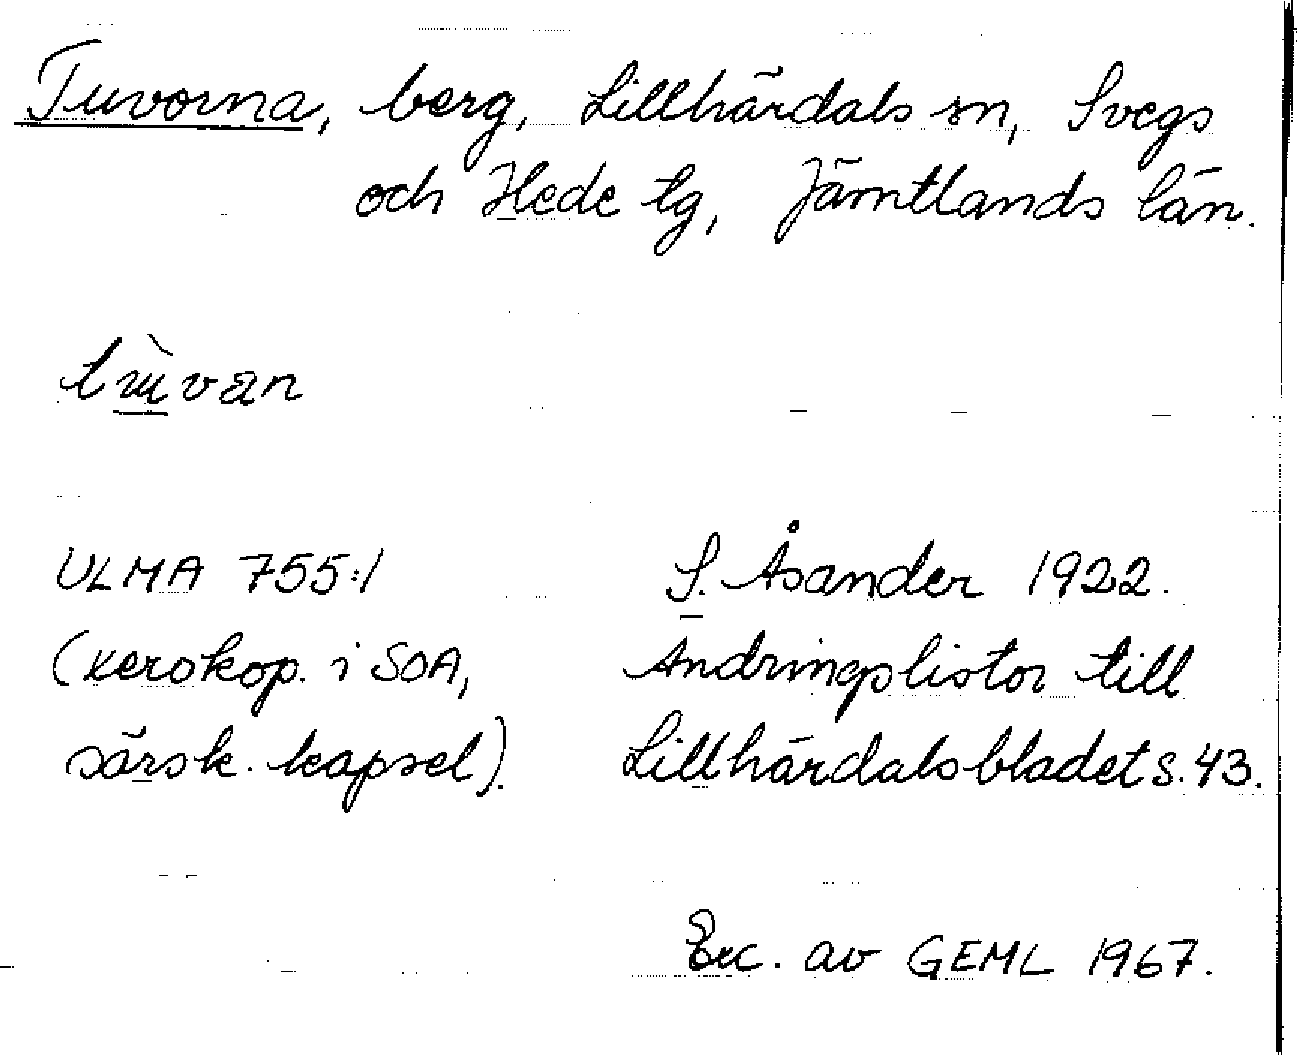 Tuvorna, berg, Lillhärdals sn, Svegs
och Hede tg, Jämtlands län.
ULMA 755:1
(xerokop. i SOA,
särsk. kapsel).
S. Åsander 1922.
Ändringslistor till
Lillhärdalsbladet s. 43.
Exc. av GEML 1967.